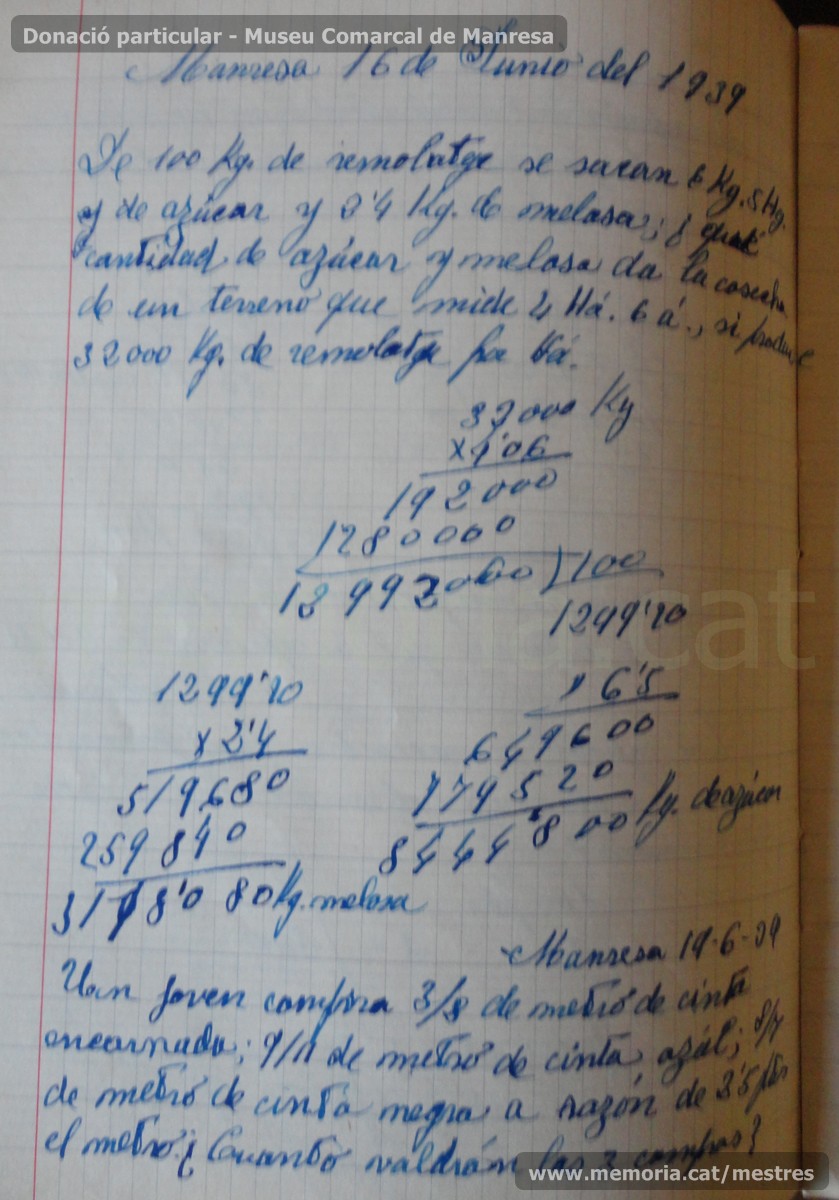 Donació particular - Museu Comarcal de Manresa
Manresa 16 de Junio del 1939
De 100 Kg. de remolatge se sacan 6 Kg. 5 Hg.
y de azúcar y 2'4 Kg. de melosa; ¿ que
cantidad de azúcar y melosa da la cosecha
de un terreno que mide 4 Há. 6 á., si produce
32000 Kg. de remolatge por Há.
32000 Kg
x4'06
192000
1280000
12992000 100
1299'20
1299'20
x 2'4
519680
259840
31180 80 Kg. melosa
x 6'5
649600
779520
8444'800 Kg. de azúcar
Manresa 19-6-39
Un joven compra 3/8 de metro de cinta
encarnada; 9/11 de metro de cinta azúl; 8/7
de metro de cinta negra a razón de 3'5 ptas
el metro ¿Cuanto valdrán las 3 compras?
www.memoria.cat/mestres